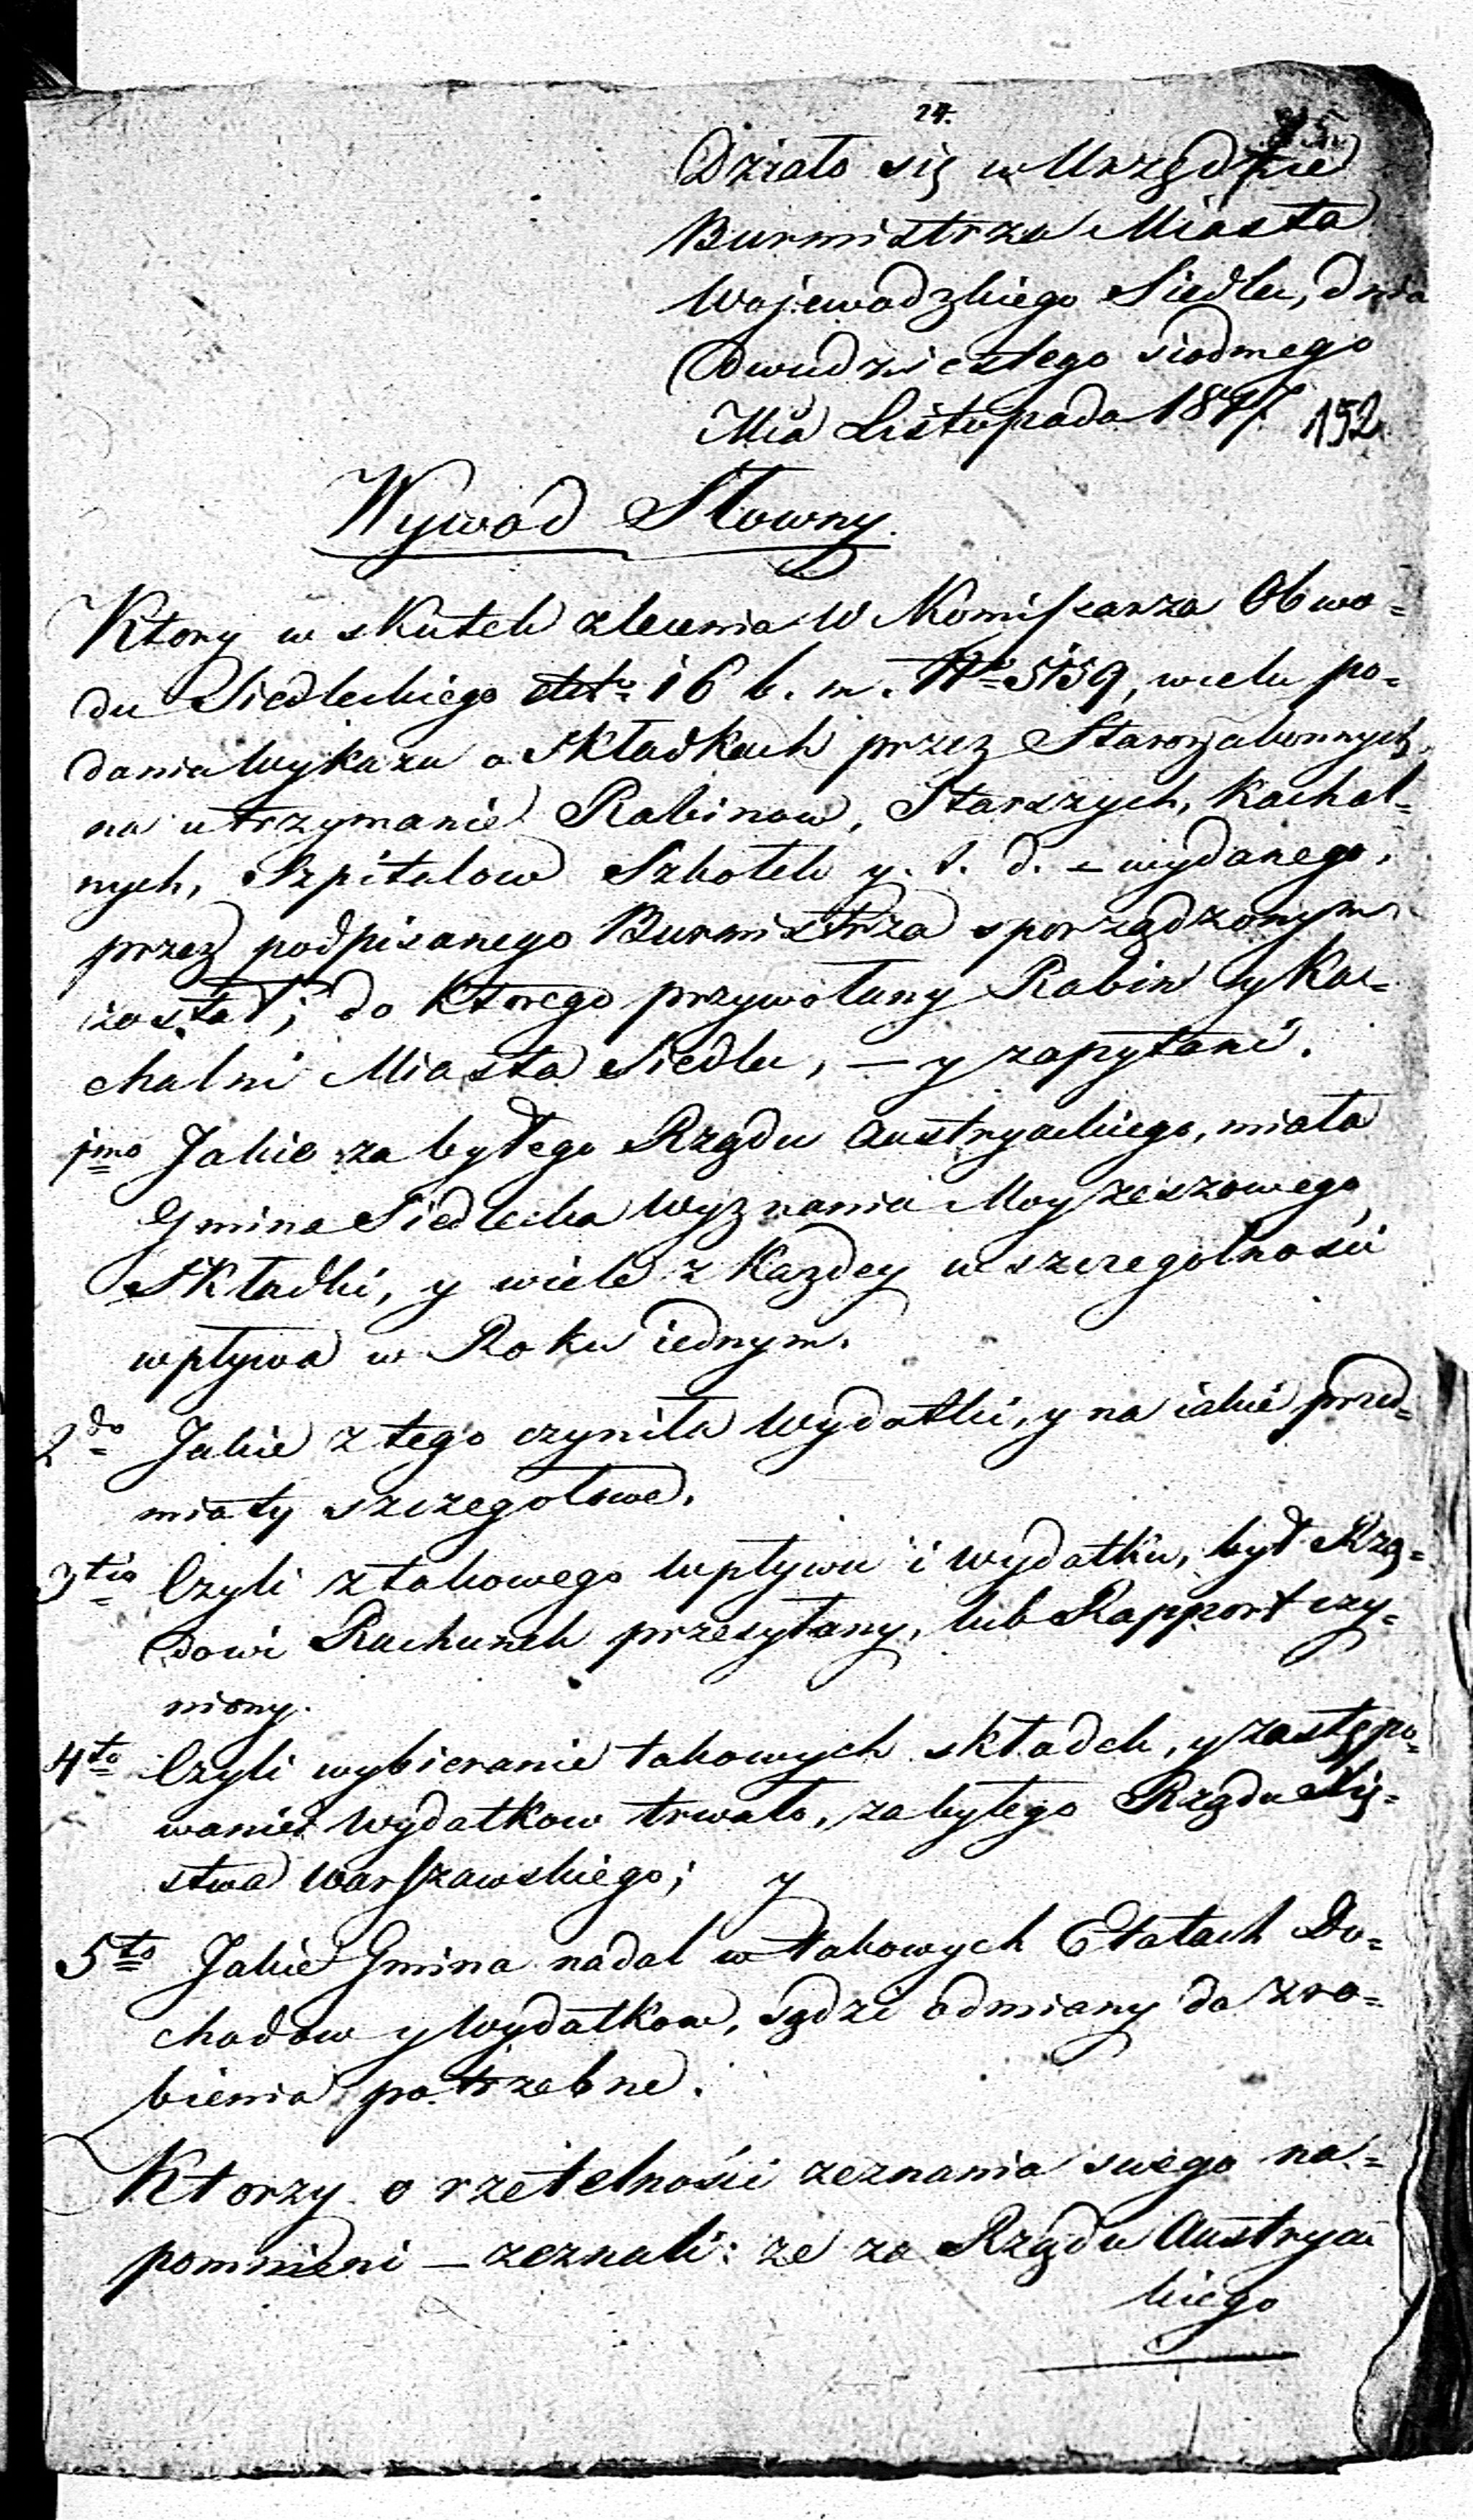 24.
Działo się w Urzędzie
Burmistrza Miasta
Wojewodzkiego Siedlec, dnia
dwudziestego siodmego
Mca Listopada 1817.
152
Wywod Słowny.
Ktory w skutek zlecenia W Komissarza Obwo=
du Siedleckiego 16 b. m. No 5159, wcelu po=
dania Wykazu o składkach przez Starozakonnych,
na utrzymanie Rabinow, Starszych, Kachal=
nych, Szpitalow Szkołek y. t. d. – wydanego,
przez podpisanego Burmistrza sporządzonym
został; do ktorego przywołany Rabin y Ka=
chalni Miasta Siedlec, – y zapytani.
1mo Jakie za byłego Rządu Austryackiego, miała
Gmina Siedlecka Wyznania Moyżeszowego
Składki, y wiele z Kazdey w szczegolności
wpływa w Roku iednym.
2do Jakie z tego czyniła Wydatki, y na iakie przed=
miaty szczegołowe.
3tio Czyli z takowego wpływu i wydatku, był Rzą=
dowi Rachunek przesyłany, lub Rapport czy=
niony.
4to Czyli wybieranie takowych składek, y zastępo=
wanie Wydatkow trwało, za byłego Rządu Xię=
stwa Warszawskiego; y
5to Jakie Gmina nadal w takowych Etatach Do=
chodow y Wydatkow, sądzi odmiany do zro=
bienia potrzebne.
Ktorzy o rzetelności zeznania swego na=
pomnieni – zeznali: ze za Rządu Austryac
kiego